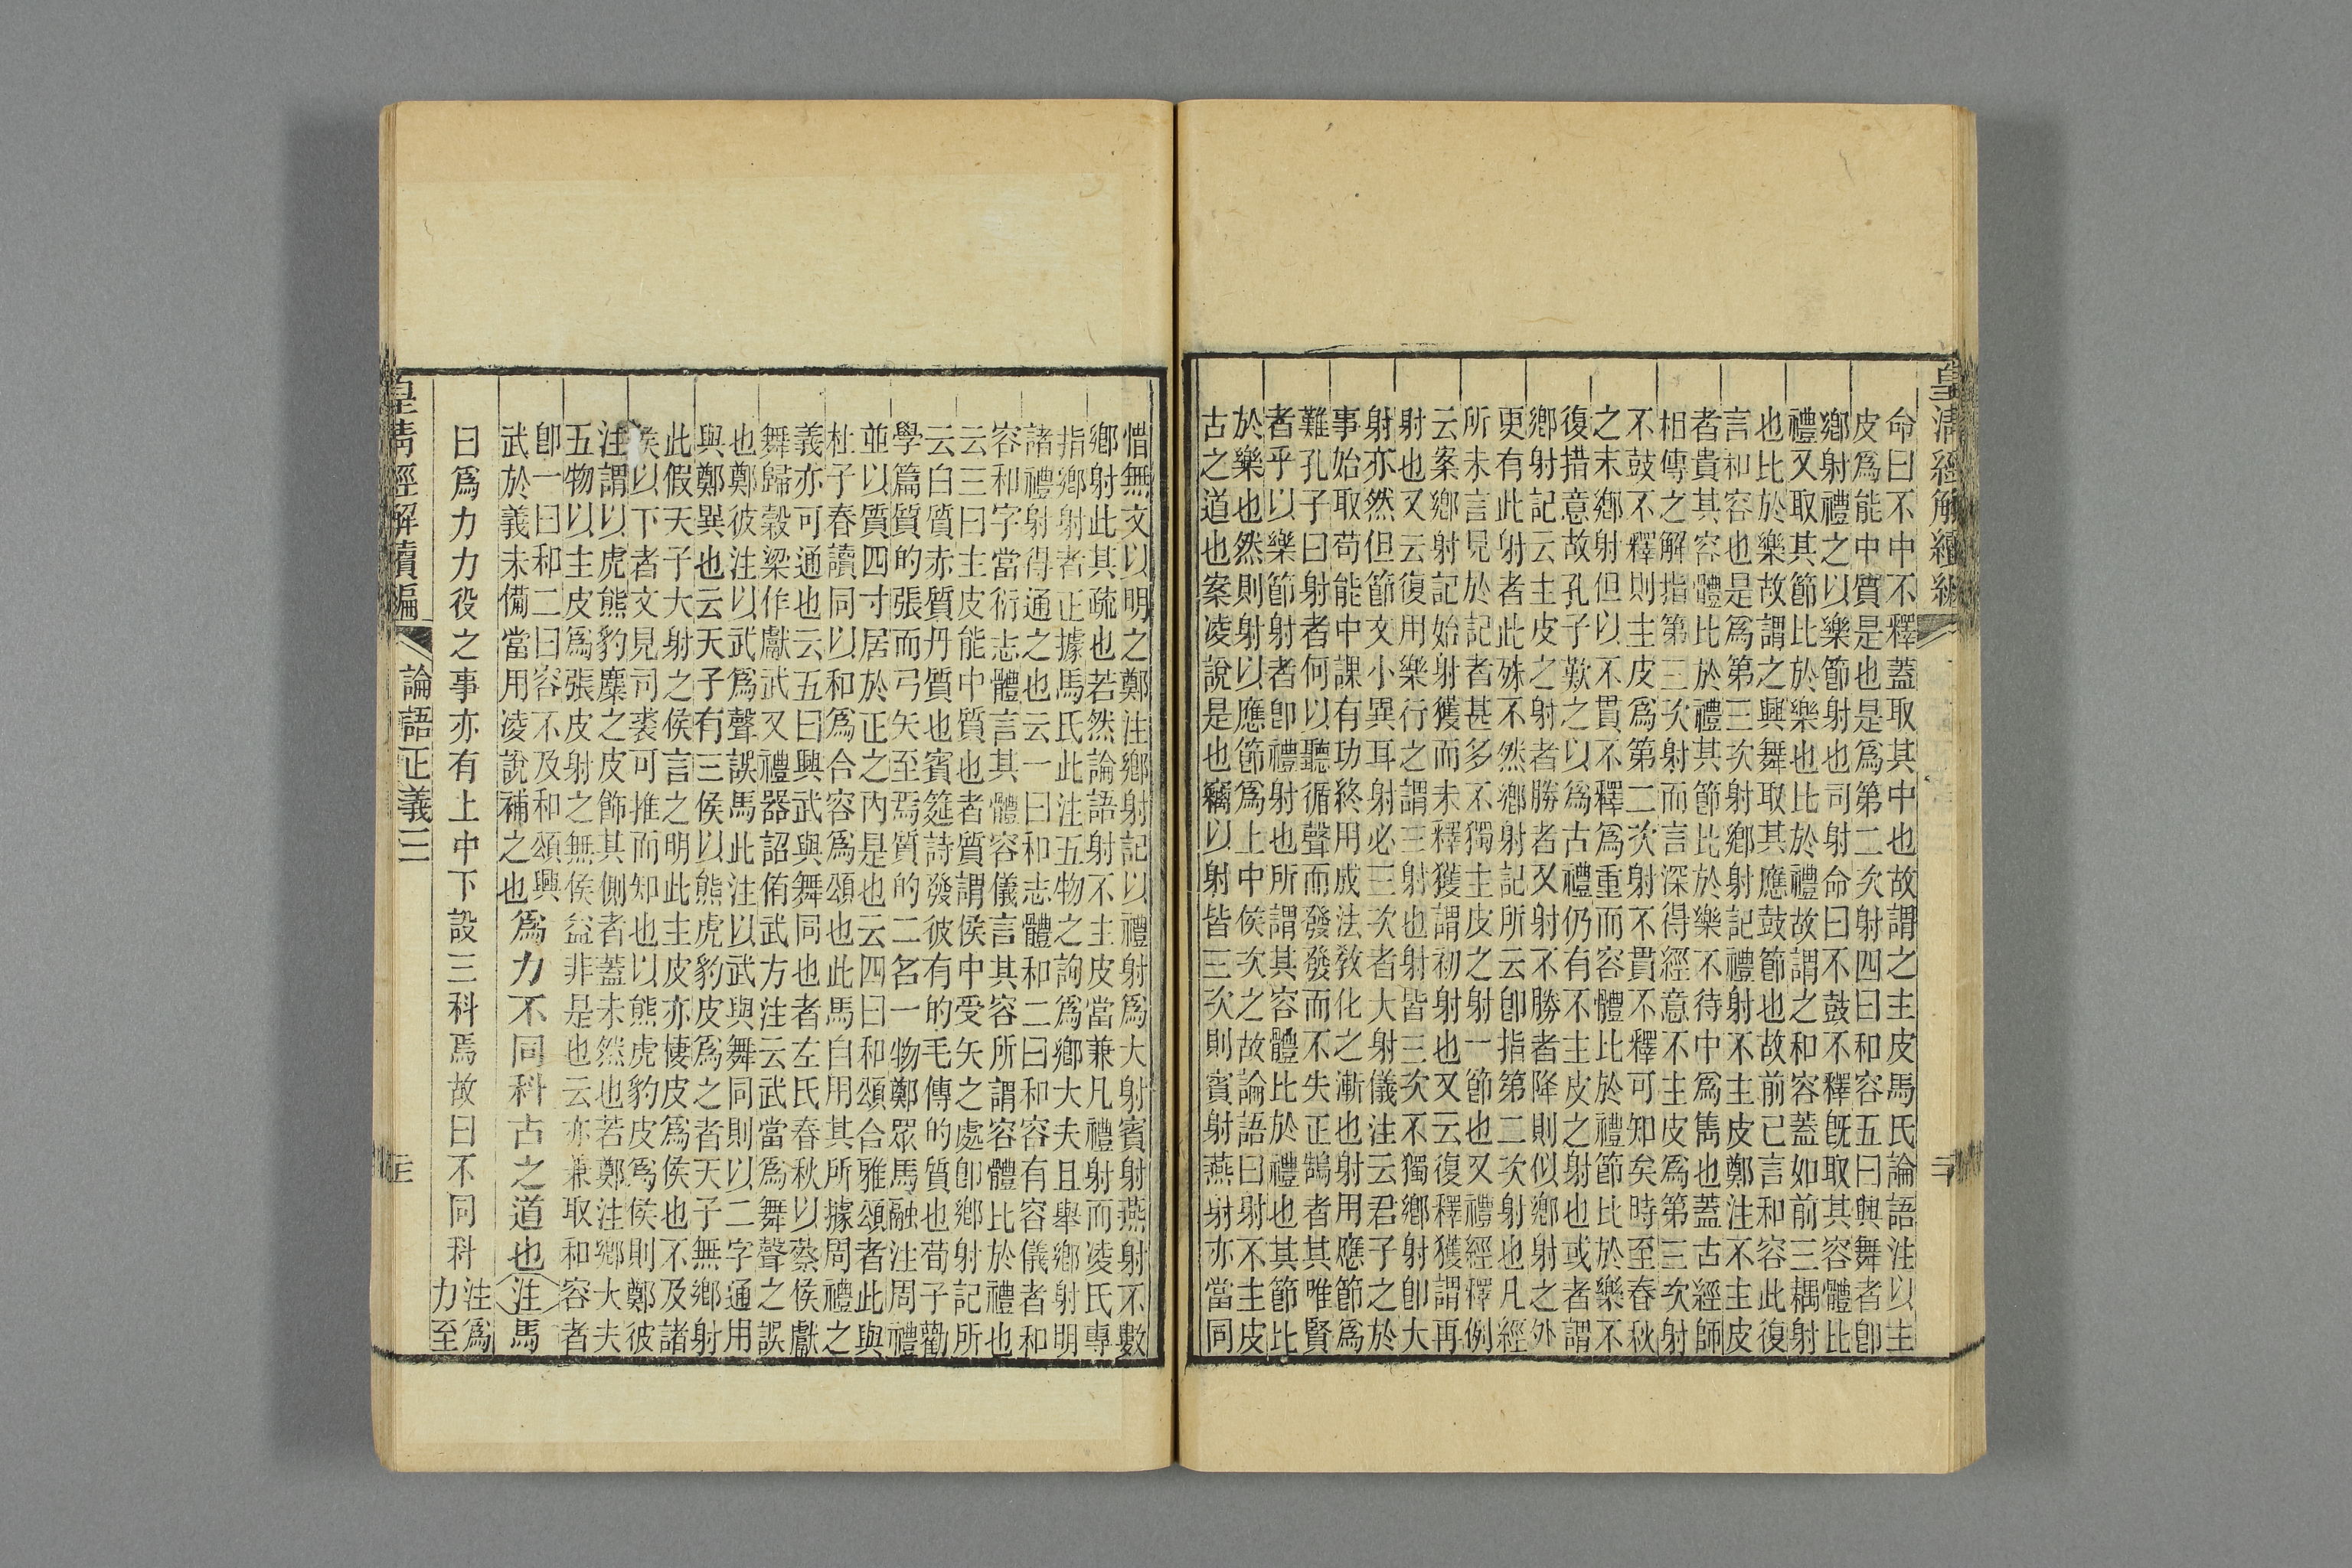 皇清經解續編
命曰不中不釋蓋取其中也故謂之主皮馬氏論語注以主
皮爲能中質是也是爲第二次射四曰和容五曰興舞者卽
鄉射禮之以樂節射也司射命曰不鼓不釋旣取其容體比
禮又取其節比於樂也比於禮故謂之和容蓋如前三耦射
也比於樂故謂之興舞取其應鼓節也故前已言和容此復
言和容也是爲第三次射鄉射記禮射不主皮鄭注不主皮
者貴其容體比於禮其節比於樂不待中爲雋也蓋古經師
相傳之解指第三次射而言深得經意不主皮爲第三次射
不鼓不釋則主皮爲第二次射不貫不釋可知矣時至春秋
之末鄉射但以不貫不釋爲重而容體比於禮節比於樂不
復措意故孔子歎之以爲古禮仍有不主皮之射也或者謂
鄉射記云主皮之射者勝者又射不勝者降則似鄉射之外
更有此射者此殊不然鄉射記所云卽指第二次射也凡經
所未言見於記者甚多不獨主皮之射一節也又禮經釋例
云案鄉射記始射獲而未釋獲謂初射也又云復釋獲謂再
射也又云復用樂行之謂三射也射皆三次不獨鄉射卽大
射亦然但節文小異耳射必三次者大射儀注云君子之於
事始取苟能中課有功終用成法敎化之漸也射用應節爲
難孔子曰射者何以聽循聲而發發而不失正鵠者其唯賢
者乎以樂節射者卽禮射也所謂其容體比於禮也其節比
於樂也然則射以應節爲上中侯次之故論語曰射不主皮
古之道也案凌說是也竊以射皆三次則賓射燕射亦當同
惜無文以明之鄭注鄉射記以禮射爲大射賓射燕射不數
鄉射此其疏也若然論語射不主皮當兼凡禮射而凌氏專
指鄉射者正據馬氏此注五物之詢爲鄉大夫且舉鄉射明
諸禮射得通之也云一曰和志體和二曰和容有容儀者和
容和字當衍志體言其體容儀言其容所謂容體比於禮也
云三曰主皮能中質也者質謂侯中受矢之處卽鄉射記所
云白質赤質丹質也賓筵詩發彼有的毛傳的質也荀子勸
學篇質的張而弓矢至焉質的二名一物鄭眾馬融注周禮
並以質四寸居於正之內是也云四曰和頌合雅頌者此與
杜子春讀同以和爲合容爲頌也此馬自用其所據周禮之
義亦可通也云五曰興武與舞同也者左氏春秋以蔡侯獻
舞歸穀梁作獻武又禮器詔侑武方注云武當爲舞聲之誤
也鄭彼注以武爲聲誤馬此注以武與舞同則以二字通用
與鄭異也云天子有三侯以熊虎豹皮爲之者天子無鄉射
此假天子大射之侯言之明此主皮亦棲皮爲侯也不及諸
侯以下者文見司裘可推而知也以熊虎豹皮爲侯則鄭彼
注謂以虎熊豹麋之皮飾其側者蓋未然也若鄭注鄉大夫
五物以主皮爲張皮射之無侯益非是也云亦兼取和容者
卽一曰和二曰容不及和頌興
武於義未備當用凌說補之也
爲力不同科古之道也注馬
曰爲力力役之事亦有上中下設三科焉故曰不同科
注爲
力至
皇清經解續編
論語正義三